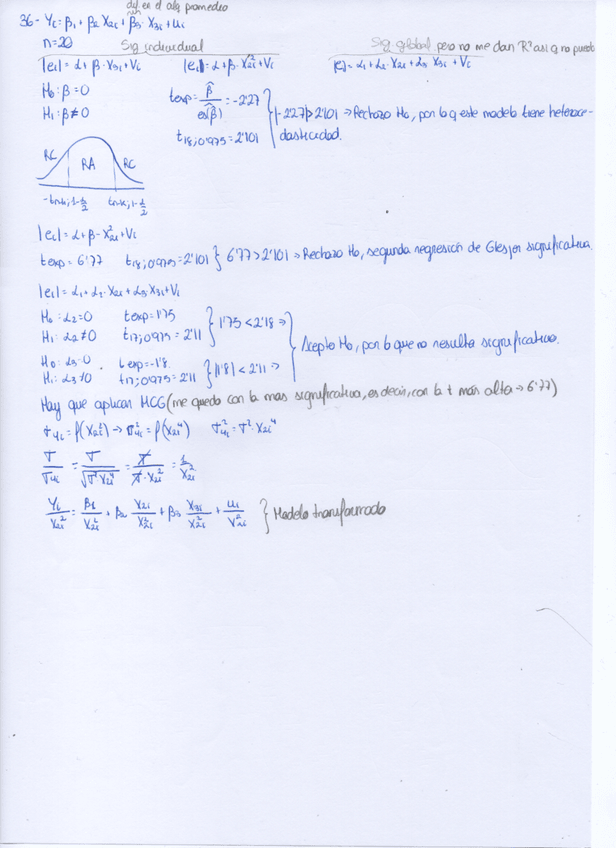 dif. en el alq promedio
36- Yi = β1 + β2 X2i + β3 · X3i + ui
n=20
Sig individual
Sig. global pero no me dan R² así q no puedo
|ei| = α + β · X3i + Vi
|ei| = α + β · X²2i + Vi
|ei| = α1 + α2 · X2i + α3 · X3i + Vi
H0: β = 0
H1: β ≠ 0
texp = β̂ / es(β̂) = -2'27
t18; 0'975 = 2'101
|-2'27| > 2'101 → Rechazo H0, por lo q este modelo tiene heteroce-
dasticidad.
RC RA RC
-tn-k; 1-α/2 tn-k; 1-α/2
|ei| = α + β · X²2i + Vi
texp = 6'77 t18; 0'975 = 2'101 } 6'77 > 2'101 → Rechazo H0, segunda regresión de Glesjer significativa.
|ei| = α1 + α2 · X2i + α3 · X3i + Vi
H0: α2 = 0 texp = 1'75
H1: α2 ≠ 0 t17; 0'975 = 2'11 } 1'75 < 2'18 →
H0: α3 = 0 texp = -1'8
H1: α3 ≠ 0 t17; 0'975 = 2'11 } |1'8| < 2'11 →
Acepto H0, por lo que no resulta significativo.
Hay que aplicar MCG (me quedo con la mas significativa, es decir, con la t más alta → 6'77)
σui = f(X²2i) → σ²ui = f(X2i⁴) σ²ui = σ² · X2i⁴
σ/σui = σ/√(σ² X2i⁴) = σ/(σ · X2i²) = 1/X2i²
Yi/X2i² = β1/X2i² + β2 X2i/X2i² + β3 X3i/X2i² + ui/X2i² } Modelo transformado